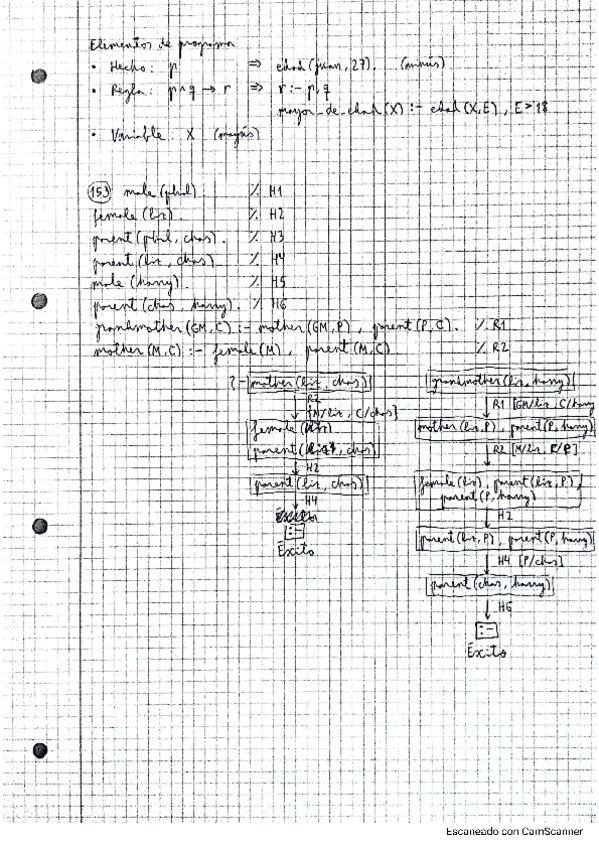 Elementos de programa
• Hecho: p ⇒ edad(juan, 27). (minús)
• Regla: p ∧ q → r ⇒ r :- p, q
mayor_de_edad(X) :- edad(X,E), E > 18
• Variable: X (mayús)
153 male(phil) % H1
female(liz). % H2
parent(phil, chas). % H3
parent(liz, chas) % H4
male(harry). % H5
parent(chas, harry). % H6
grandmother(GM,C) :- mother(GM,P), parent(P,C). % R1
mother(M,C) :- female(M), parent(M,C) % R2
?- mother(liz, chas)
R2
[M/liz, C/chas]
female(liz)
parent(liz, chas)
H2
parent(liz, chas)
H4
:-
Éxito
grandmother(liz, harry)
R1 [GM/liz, C/harry
mother(liz,P), parent(P, harry)
R2 [M/liz, C/P]
female(liz), parent(liz, P),
parent(P, harry)
H2
parent(liz, P), parent(P, harry)
H4 [P/chas]
parent(chas, harry)
H6
:-
Éxito
Escaneado con CamScanner